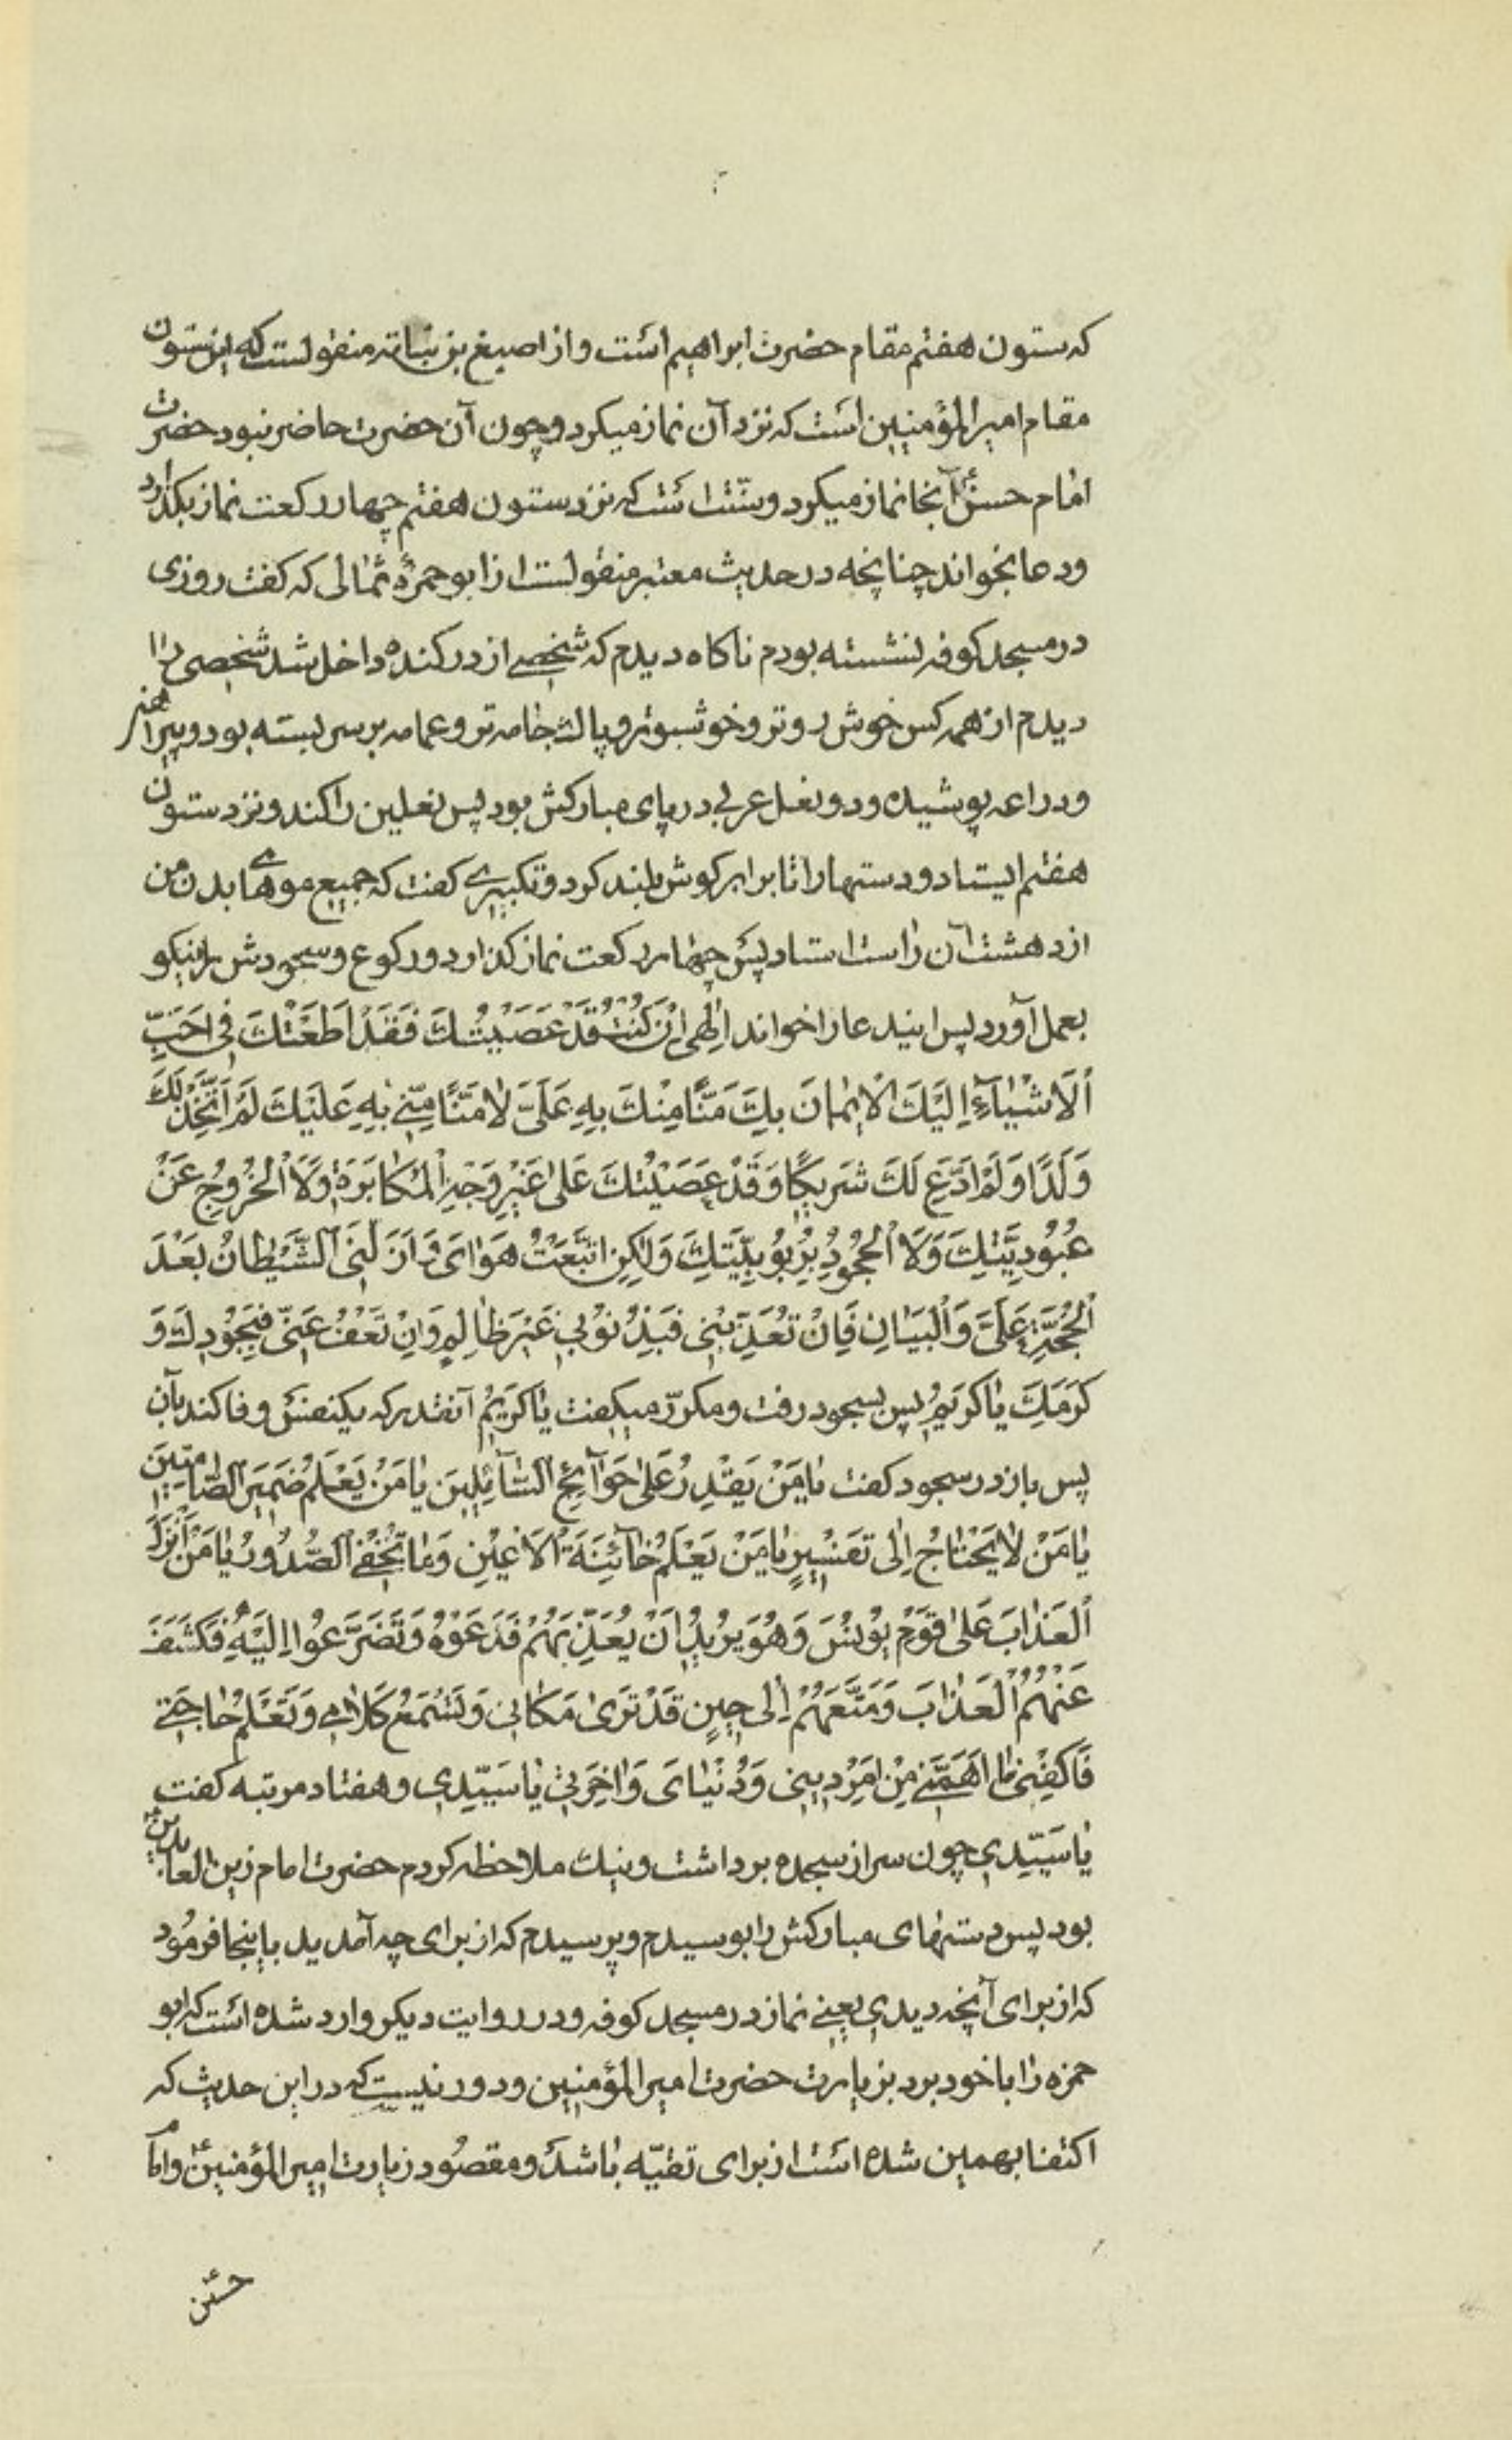 که ستون هفتم مقام حضرت ابراهیم است و از اصبغ بن نباته منقولست که این ستون
مقام امیر المؤمنین است که نزد آن نماز میکرد و چون آن حضرت حاضر نبود حضرت
امام حسن ع آنجا نماز میکرد و سنّت است که نزد ستون هفتم چهار رکعت نماز بکذارد
و دعا بخواند چنانچه در حدیث معتبر منقولست از ابو حمزهٔ ثمالی که کفت روزی
در مسجد کوفه نشسته بودم ناکاه دیدم که شخصے از در کنده داخل شد شخصی را
دیدم از همه کس خوش روتر و خوشبوتر و پاک جامه تر و عمامه بر سر بسته بود و پیراهنی
و دراعه پوشیده و دو نعل عربی در پای مبارکش بود پس نعلین را کند و نزد ستون
هفتم ایستاد و دستها را تا برابر کوش بلند کرد و تکبیرے کفت که جمیع موهاے بدن من
از دهشت آن راست استاد پس چهار رکعت نماز کذارد و رکوع و سجودش را نیکو
بعمل آورد پس ایندعا را خواند اِلٰهی اِنْ کُنْتُ قَدْ عَصَیْتُكَ فَقَدْ اَطَعْتُكَ فِی اَحَبِّ
اَلْاَشْیٰآءِ اِلَیْكَ الْاٖیْمٰانَ بِكَ مَنًّا مِنْكَ بِهِ عَلَیَّ لٰا مَنًّا مِنّٖی بِهِ عَلَیْكَ لَمْ اَتَّخِذْ لَكَ
وَلَدًا وَلَمْ اَدْعُ لَكَ شَرٖیكًا وَقَدْ عَصَیْتُكَ عَلٰی غَیْرِ وَجْهِ الْمُکٰابَرَةِ وَلَا الْخُرُوجِ عَنْ
عُبُودِیَّتِكَ وَلَا الْجُحُودِ بِرُبُوبِیَّتِكَ وَلٰکِنِ اتَّبَعْتُ هَوٰایَ وَ اَزَلَّنِیَ الشَّیْطٰانُ بَعْدَ
الْحُجَّةِ عَلَیَّ وَالْبَیٰانِ فَاِنْ تُعَذِّبْنِی فَبِذُنُوبٖی غَیْرَ ظٰالِمٍ وَاِنْ تَعْفُ عَنّٖی فَبِجُودِكَ وَ
کَرَمِكَ یٰا کَرٖیْمُ پس بسجود رفت و مکرّر میکفت یٰا کَرٖیْمُ آنقدر که یکنفس وفا کند بآن
پس باز در سجود کفت یٰا مَنْ یَقْدِرُ عَلٰی حَوٰآئِجِ السّٰآئِلٖینَ یٰا مَنْ یَعْلَمُ ضَمٖیْرَ الصّٰامِتٖیْنَ
یٰا مَنْ لٰا یَحْتٰاجُ اِلٰی تَفْسٖیْرٍ یٰا مَنْ یَعْلَمُ خٰآئِنَةَ الْاَعْیُنِ وَمٰا تُخْفِی الصُّدُورُ یٰا مَنْ اَنْزَلَ
اَلْعَذٰابَ عَلٰی قَوْمِ یُوْنُسَ وَهُوَ یُرٖیْدُ اَنْ یُعَذِّبَهُمْ فَدَعَوْهُ وَتَضَرَّعُوا اِلَیْهِ فَکَشَفَ
عَنْهُمُ الْعَذٰابَ وَمَتَّعَهُمْ اِلٰی حٖیْنٍ قَدْ تَرٰی مَکٰانٖی وَتَسْمَعُ کَلٰامٖی وَتَعْلَمُ حٰاجَتٖی
فَاکْفِنٖی مٰا اَهَمَّنٖی مِنْ اَمْرِ دٖیْنٖی وَدُنْیٰایَ وَاٰخِرَتٖی یٰا سَیِّدٖی و هفتاد مرتبه کفت
یٰا سَیِّدٖی چون سر از سجده برداشت و نیک ملاحظه کردم حضرت امام زین العابدین ع
بود پس دستهای مبارکش را بوسیدم و پرسیدم که از برای چه آمدید باینجا فرمود
که از برای آنچه دیدی یعنے نماز در مسجد کوفه و در روایت دیکر وارد شده است که ابو
حمزه را با خود برد بزیارت حضرت امیر المؤمنین و دور نیست که در این حدیث که
اکتفا بهمین شده است از برای تقیّه باشد و مقصود زیارت امیر المؤمنین ع و امام
حسین